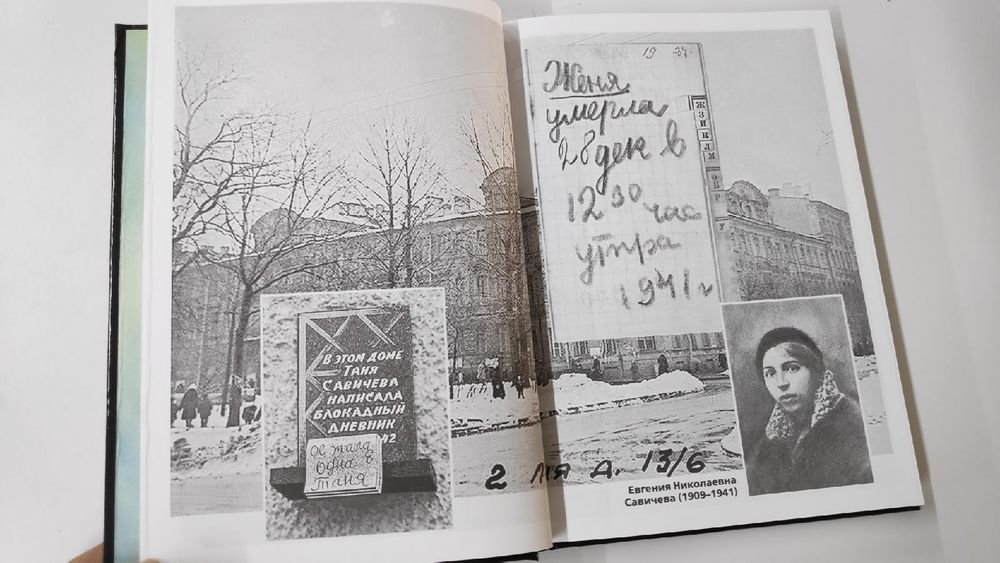 В ЭТОМ ДОМЕ
ТАНЯ
САВИЧЕВА
НАПИСАЛА
БЛОКАДНЫЙ
ДНЕВНИК
42
Осталась
Одна
Таня
2 ЛИЯ Д. 13/6
Женя
умерла
28 дек в
12 30 час
утра
1941 г
Ж
З
И
К
Л
М
О
П
Р
У
Евгения Николаевна
Савичева (1909–1941)